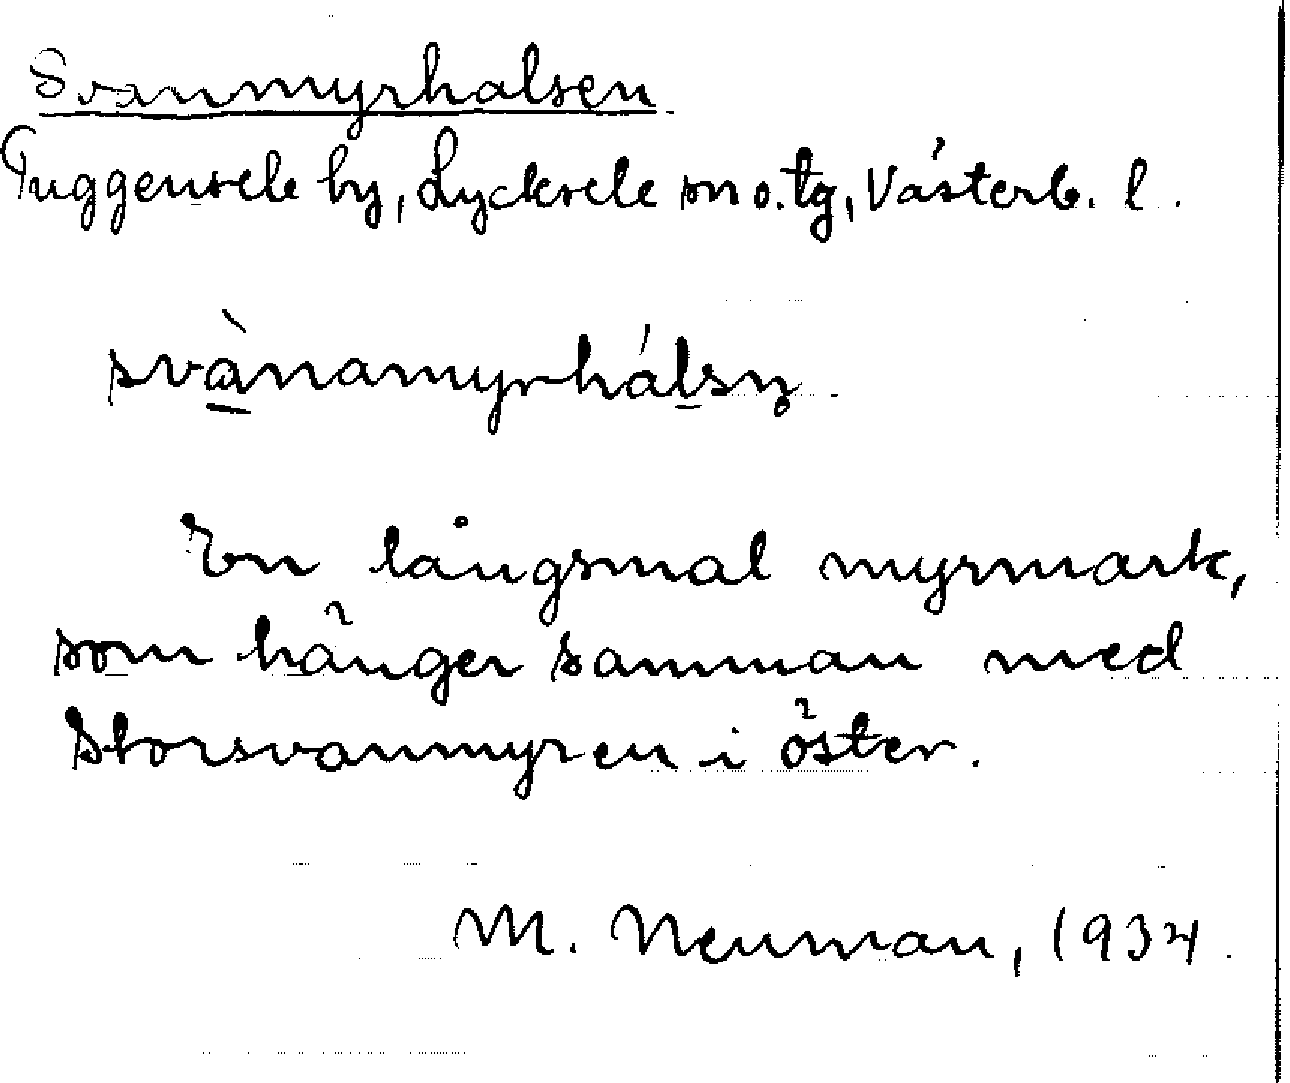 Svanmyrhalsen
Tuggensele by, Lycksele sn o. tg, Västerb. l.
svànamyrhálsn̥.
En långsmal myrmark,
som hänger samman med
Storsvanmyren i öster.
M. Neuman, 1934.